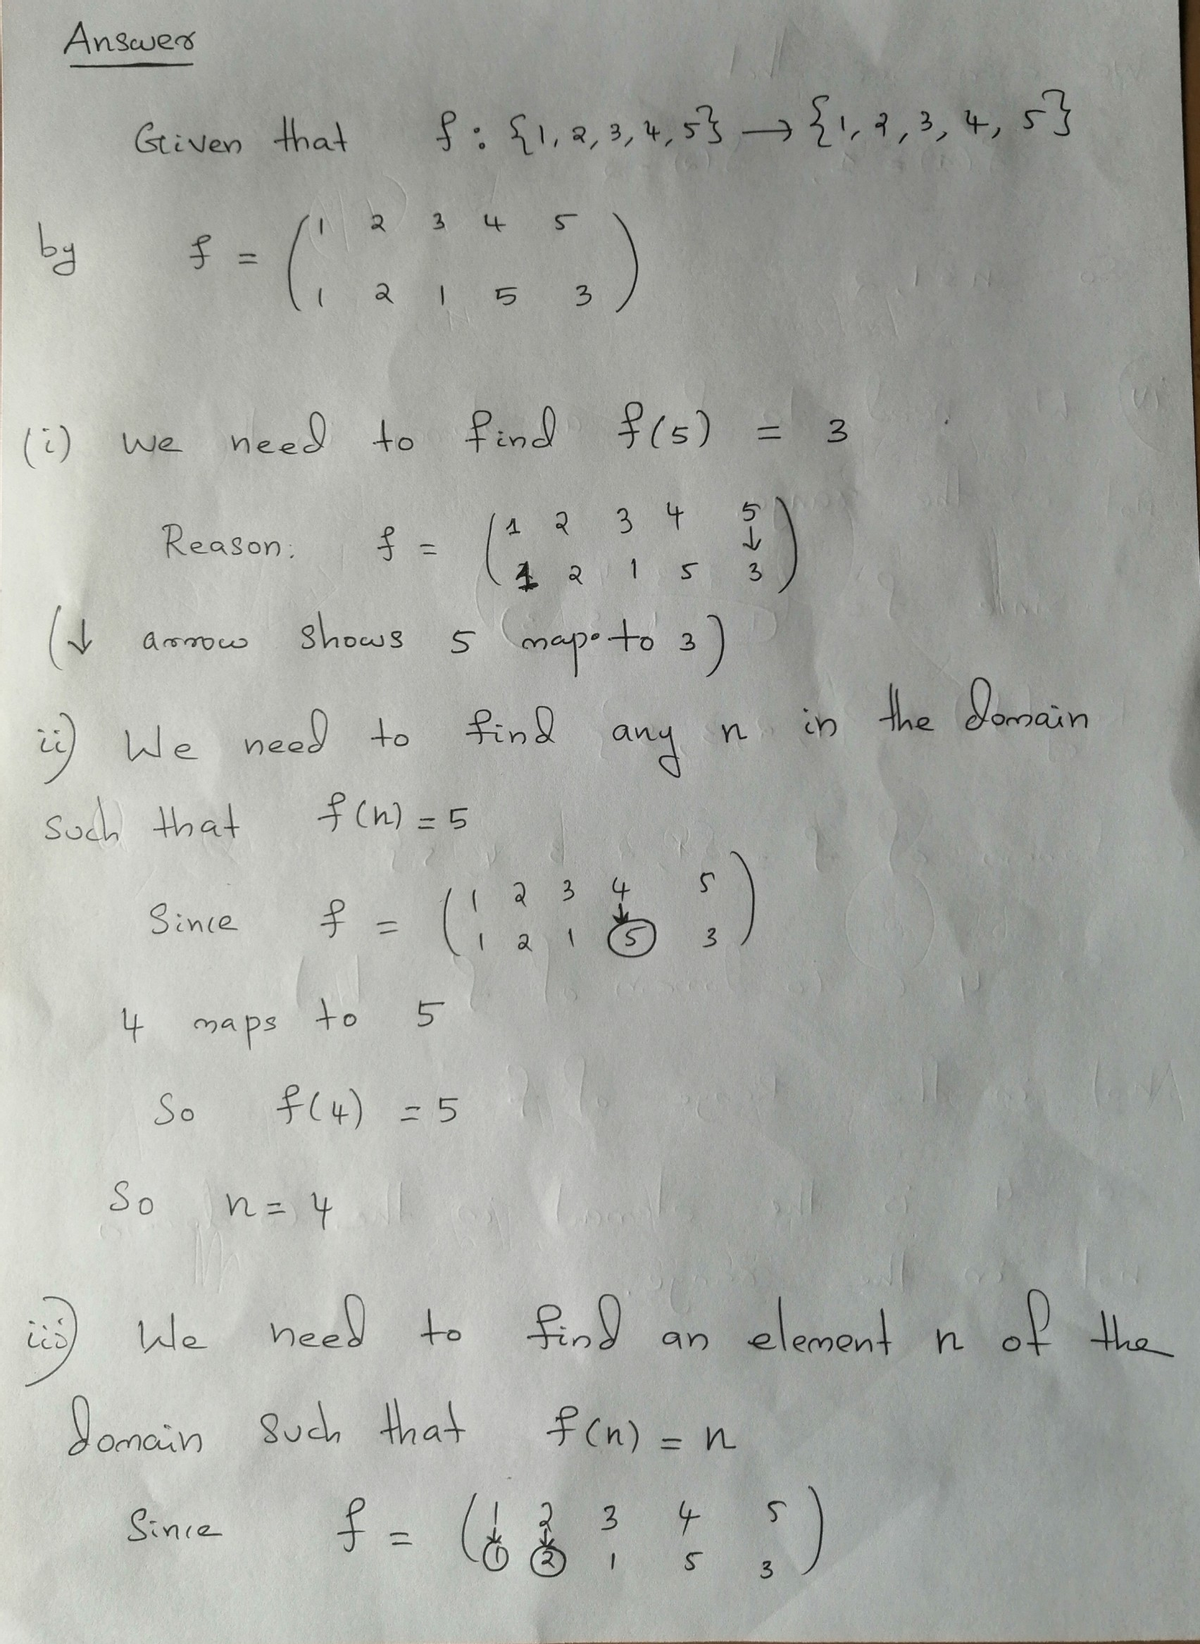 Answer
Given that f : {1, 2, 3, 4, 5} → {1, 2, 3, 4, 5}
by f = ( 1 2 3 4 5
1 2 1 5 3 )
(i) We need to find f(5) = 3
Reason: f = ( 1 2 3 4 5
↓
1 2 1 5 3 )
(↓ arrow shows 5 maps to 3)
ii) We need to find any n in the domain
such that f(n) = 5
Since f = ( 1 2 3 4 5
↓
1 2 1 5 3 )
4 maps to 5
So f(4) = 5
So n = 4
iii) We need to find an element n of the
domain such that f(n) = n
Since f = ( 1 2 3 4 5
↓ ↓
1 2 1 5 3 )